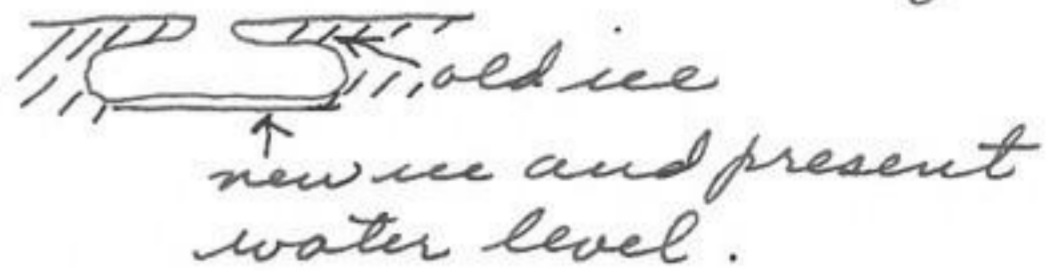 old ice
new ice and present
water level.